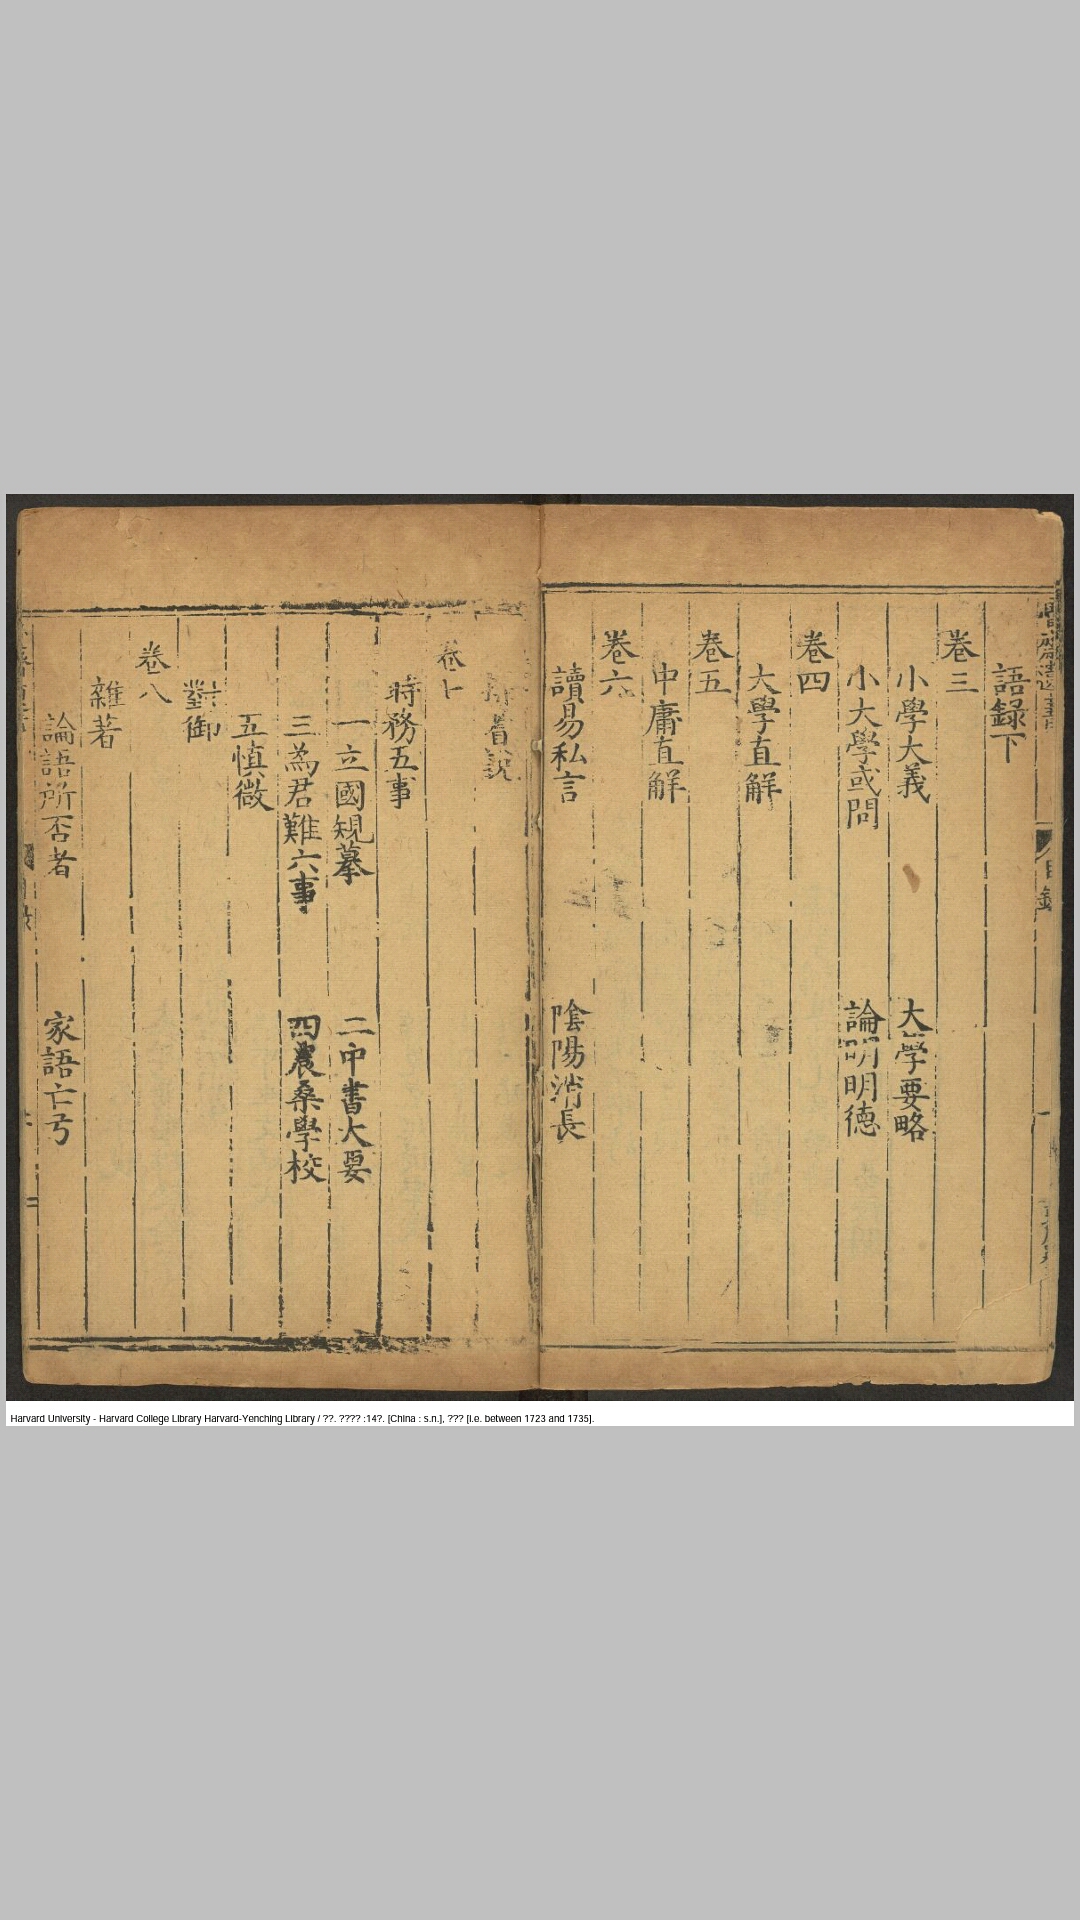 語録下
卷三
小學大義 大學要略
小大學或問 論明明德
卷四
大學直解
卷五
中庸直解
卷六
讀易私言 陰陽消長
蓍說
卷七
時務五事
一立國規摹 二中書大要
三為君難六事 四農桑學校
五慎微
對御
卷八
雜著
論語所否者 家語亡弓
目錄
Harvard University - Harvard College Library Harvard-Yenching Library / ??. ???? :14?. [China : s.n.], ??? [i.e. between 1723 and 1735].